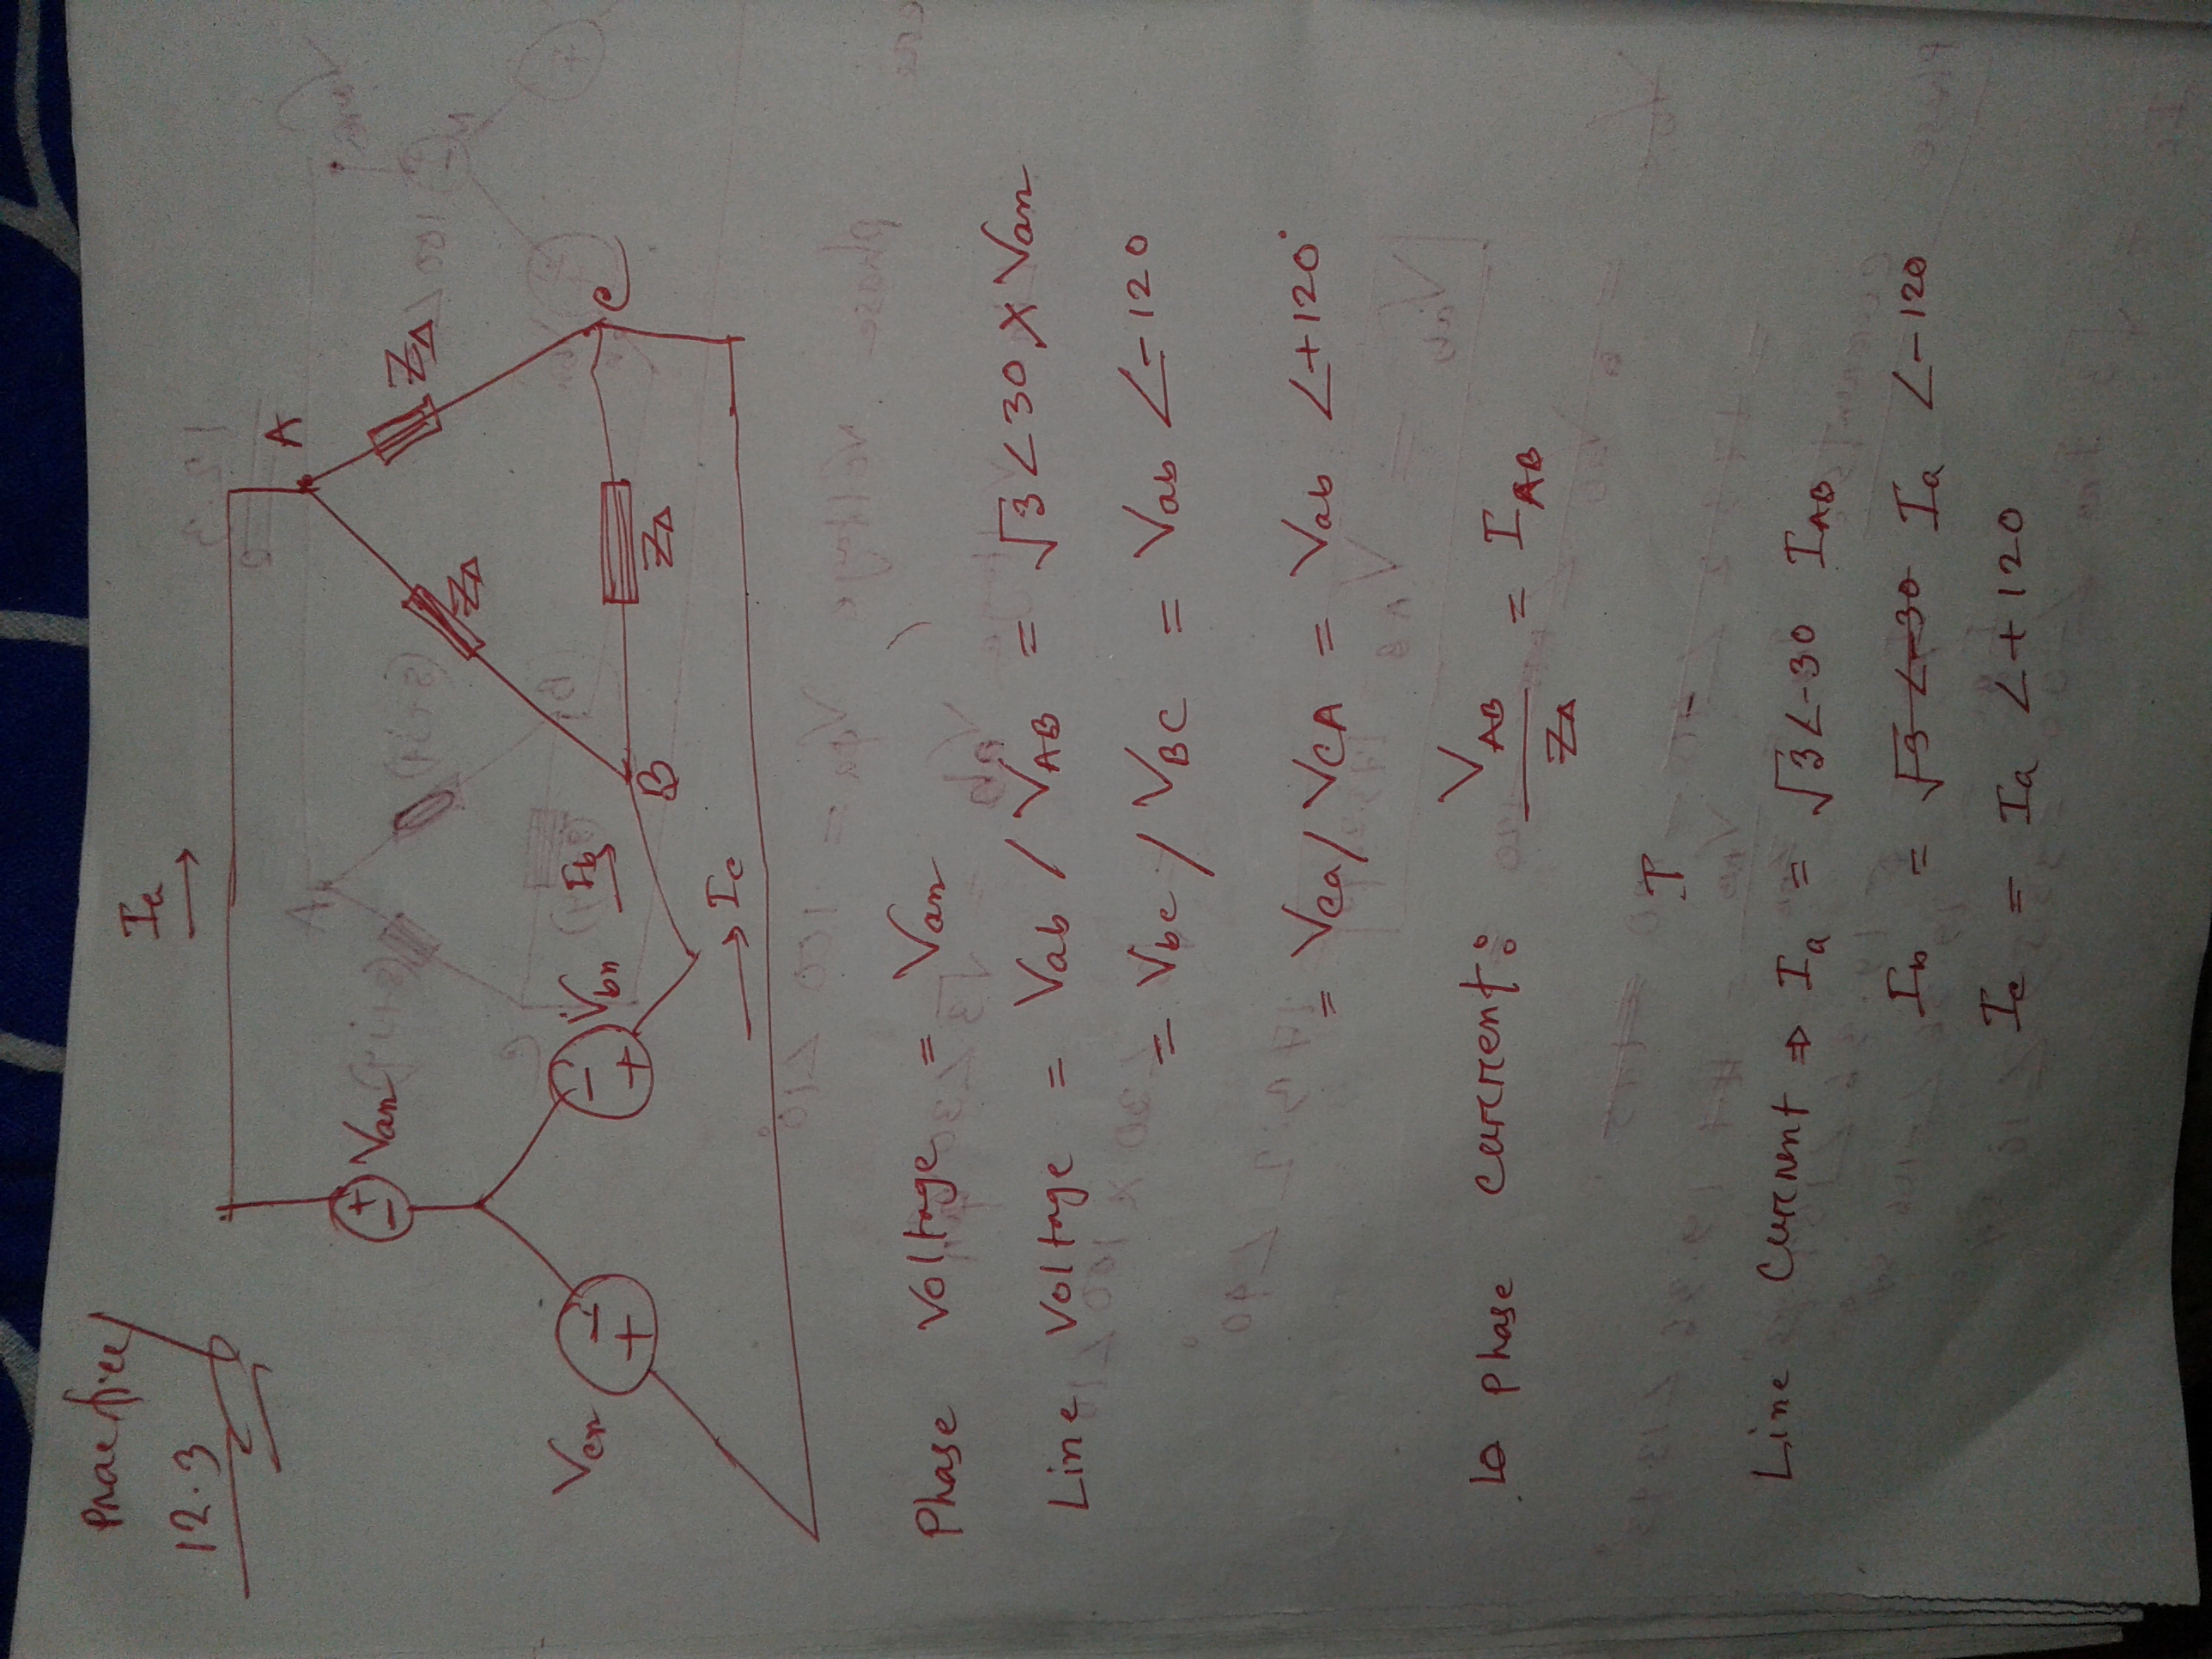 Practice
12.3
Ia
A
+
−
Van
ZΔ
ZΔ
Vcn
−
+
−
+
Vbn
Ib
B
ZΔ
C
Ic
Phase Voltage = Van
Line Voltage = Vab / VAB = √3 ∠30 × Van
= Vbc / VBC = Vab ∠-120
= Vca / VCA = Vab ∠+120°
phase current: VAB / ZΔ = IAB
I
Line Current ⇒ Ia = √3 ∠-30 IAB
Ib = √3 ∠-30 Ia ∠-120
Ic = Ia ∠+120